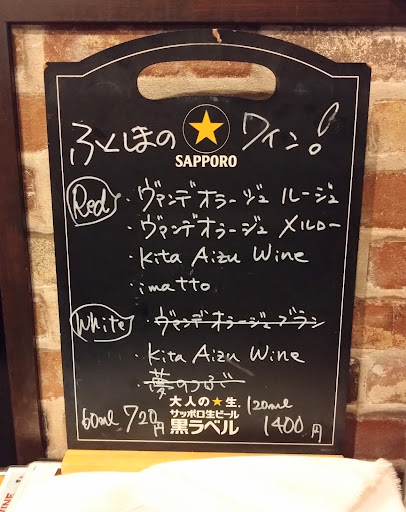 ふくしまの ワイン!
SAPPORO
Red
・ヴァンデオラージュ ルージュ
・ヴァンデオラージュ メルロー
・Kita Aizu Wine
・imatto
White
・ヴァンデオラージュブラン
・Kita Aizu Wine
・夢のつぶ
大人の★生
サッポロ生ビール
黒ラベル
60ml 720円
120ml 1400円